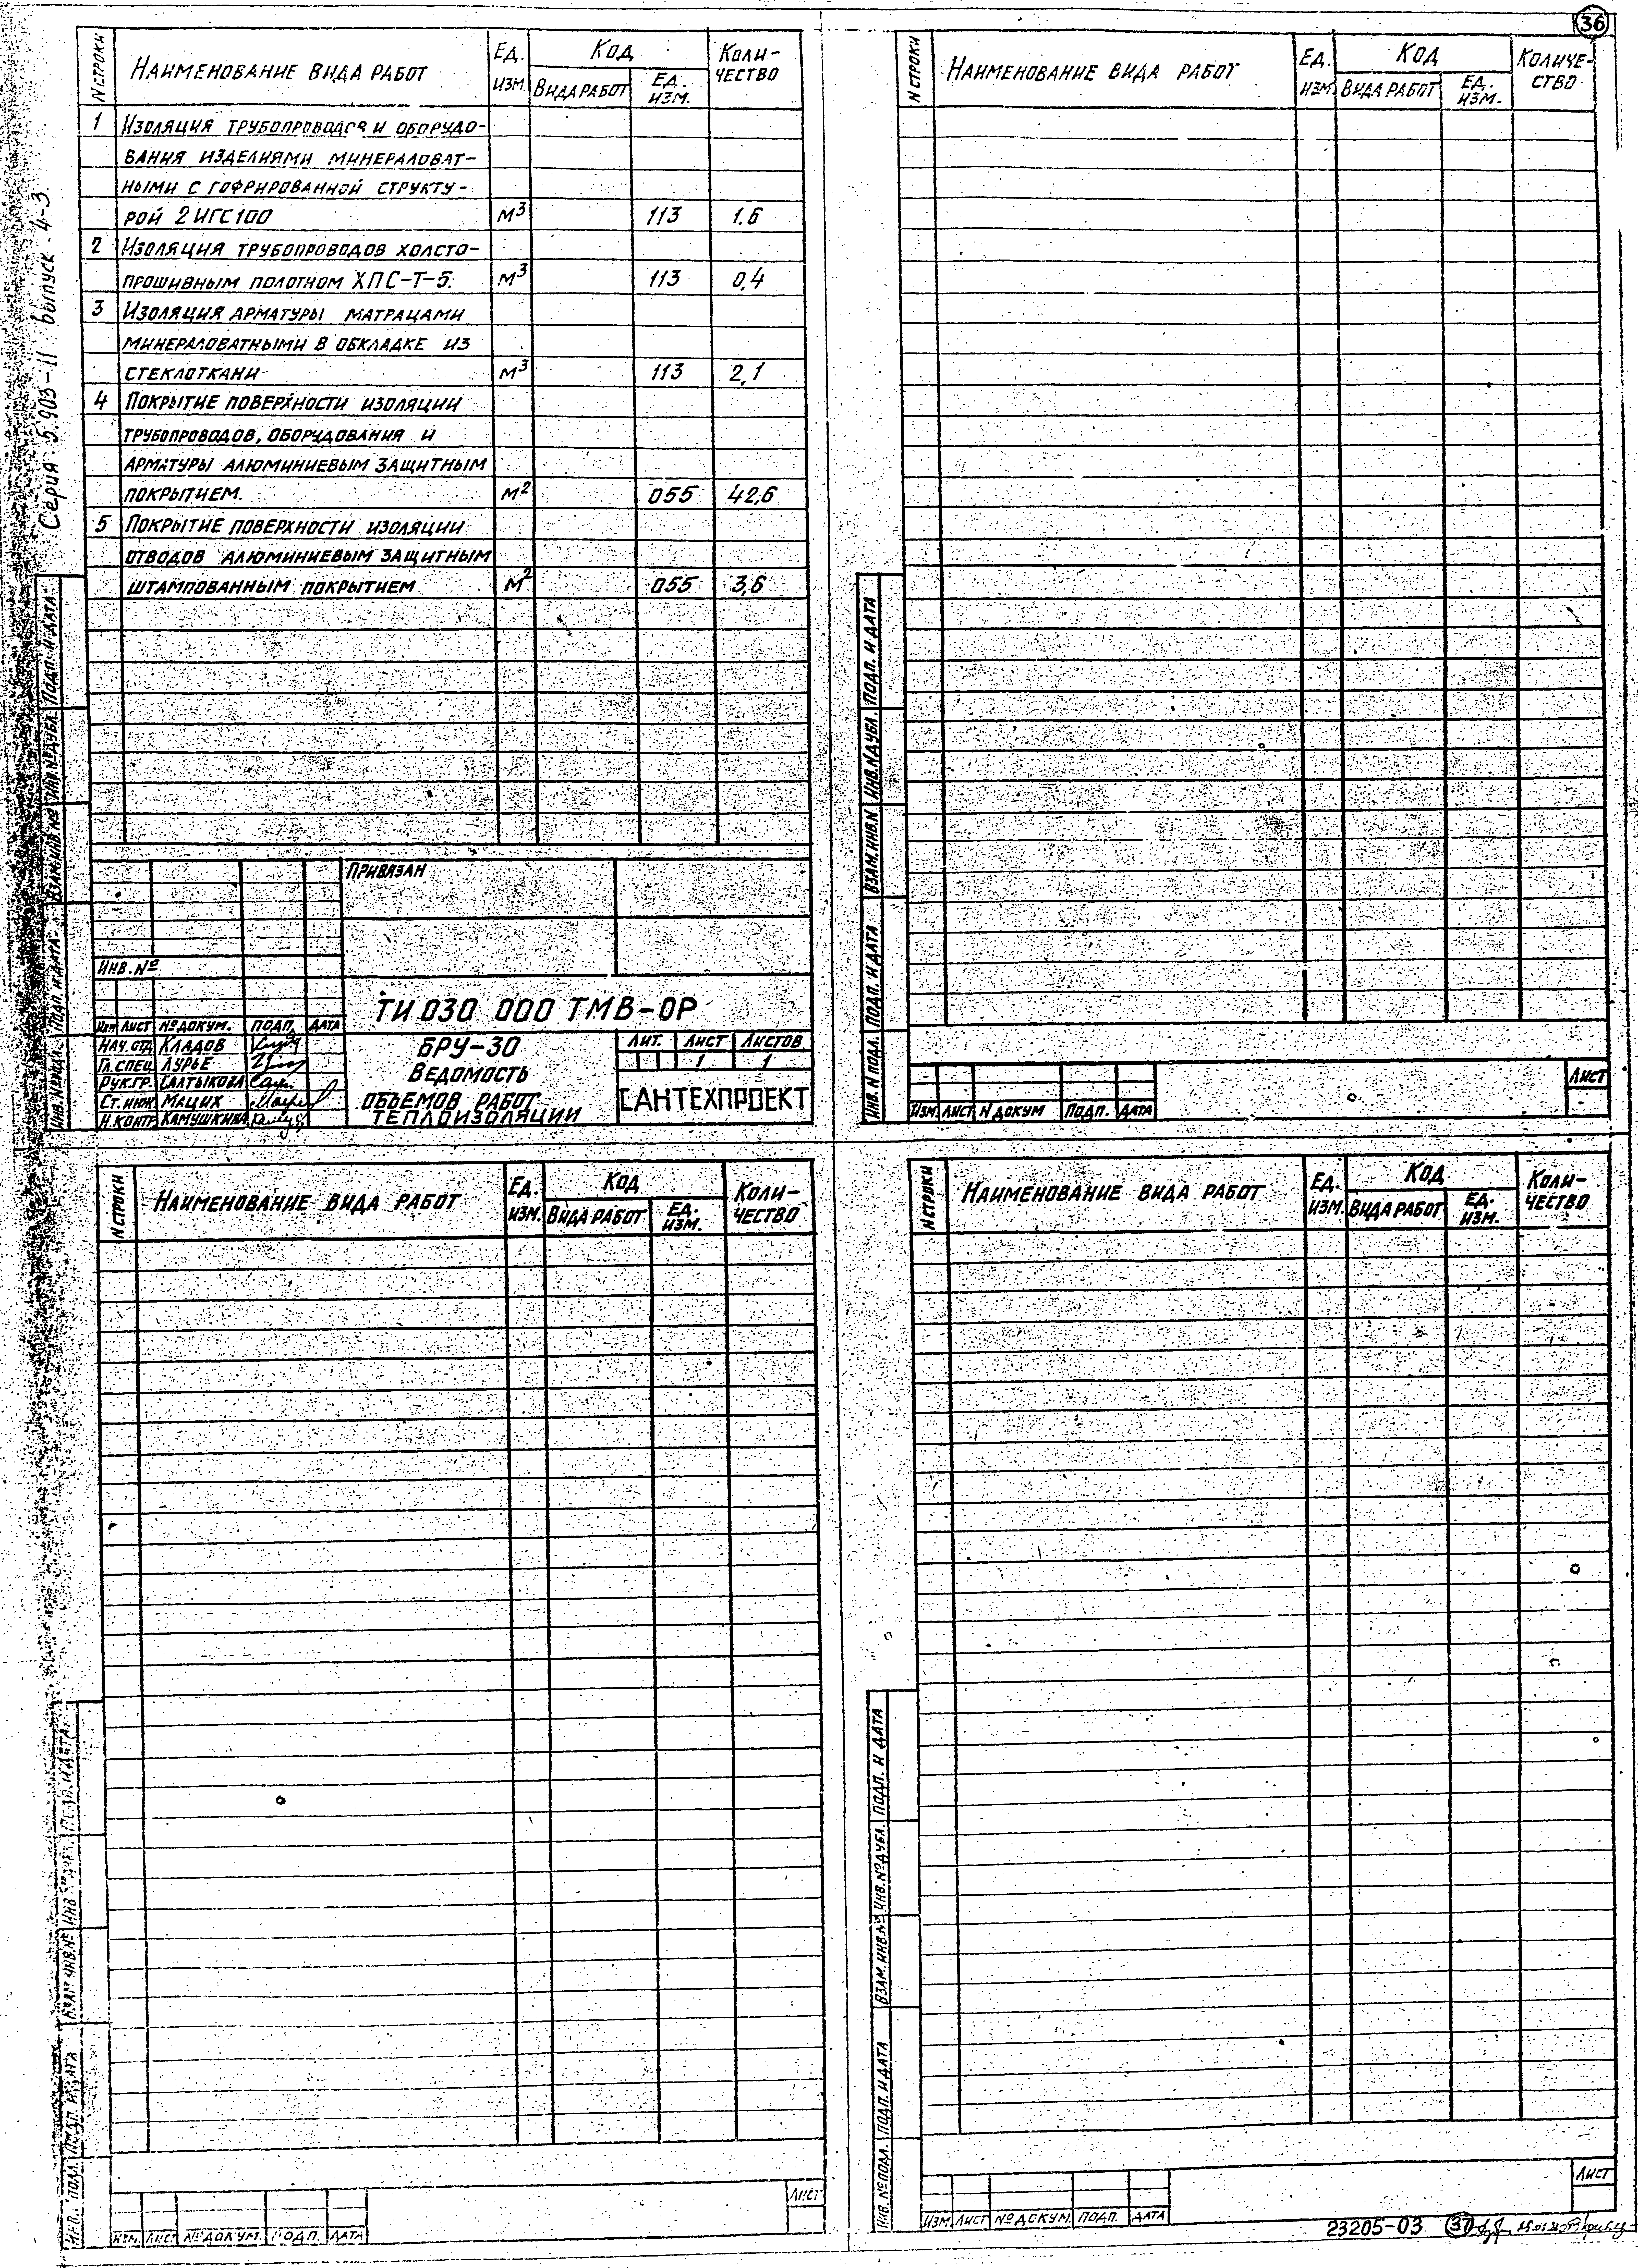 36
Серия 5.903-11 выпуск 4-3
N строки Наименование вида работ Ед. изм. Код Коли-чество
Вида работ Ед. изм.
1 Изоляция трубопроводов и оборудо-
вания изделиями минераловат-
ными с гофрированной структу-
рой 2ИГС100 м³ 113 1.6
2 Изоляция трубопроводов холсто-
прошивным полотном ХПС-Т-5. м³ 113 0,4
3 Изоляция арматуры матрацами
минераловатными в обкладке из
стеклоткани м³ 113 2,1
4 Покрытие поверхности изоляции
трубопроводов, оборудования и
арматуры алюминиевым защитным
покрытием. м² 055 42,6
5 Покрытие поверхности изоляции
отводов алюминиевым защитным
штампованным покрытием м² 055 3,6
Подп. и дата
Инв. № дубл.
Взам. инв. №
Подп. и дата
Инв. № подл.
Привязан
Инв. №
ТИ 030 000 ТМВ-ОР
Изм. Лист № докум. Подп. Дата
Нач. отд. Кладов
Гл. спец. Лурье
Рук. гр. Салтыкова
Ст. инж. Мацих
Н. контр. Камушкина
БРУ-30
Ведомость
объемов работ
теплоизоляции
Лит. Лист Листов
1 1
САНТЕХПРОЕКТ
N строки Наименование вида работ Ед. изм. Код Количе-ство
Вида работ Ед. изм.
Подп. и дата
Инв. № дубл.
Взам. инв. N
Подп. и дата
Инв. N подл.
Изм. Лист N докум Подп. Дата
Лист
N строки Наименование вида работ Ед. изм. Код Коли-чество
Вида работ Ед. изм.
Подп. и дата
Инв. № дубл.
Взам. инв. №
Подп. и дата
Инв. № подл.
Изм. Лист № докум. Подп. Дата
Лист
N строки Наименование вида работ Ед. изм. Код Коли-чество
Вида работ Ед. изм.
Подп. и дата
Инв. № дубл.
Взам. инв. №
Подп. и дата
Инв. № подл.
Изм. Лист № докум. Подп. Дата
Лист
23205-03 37